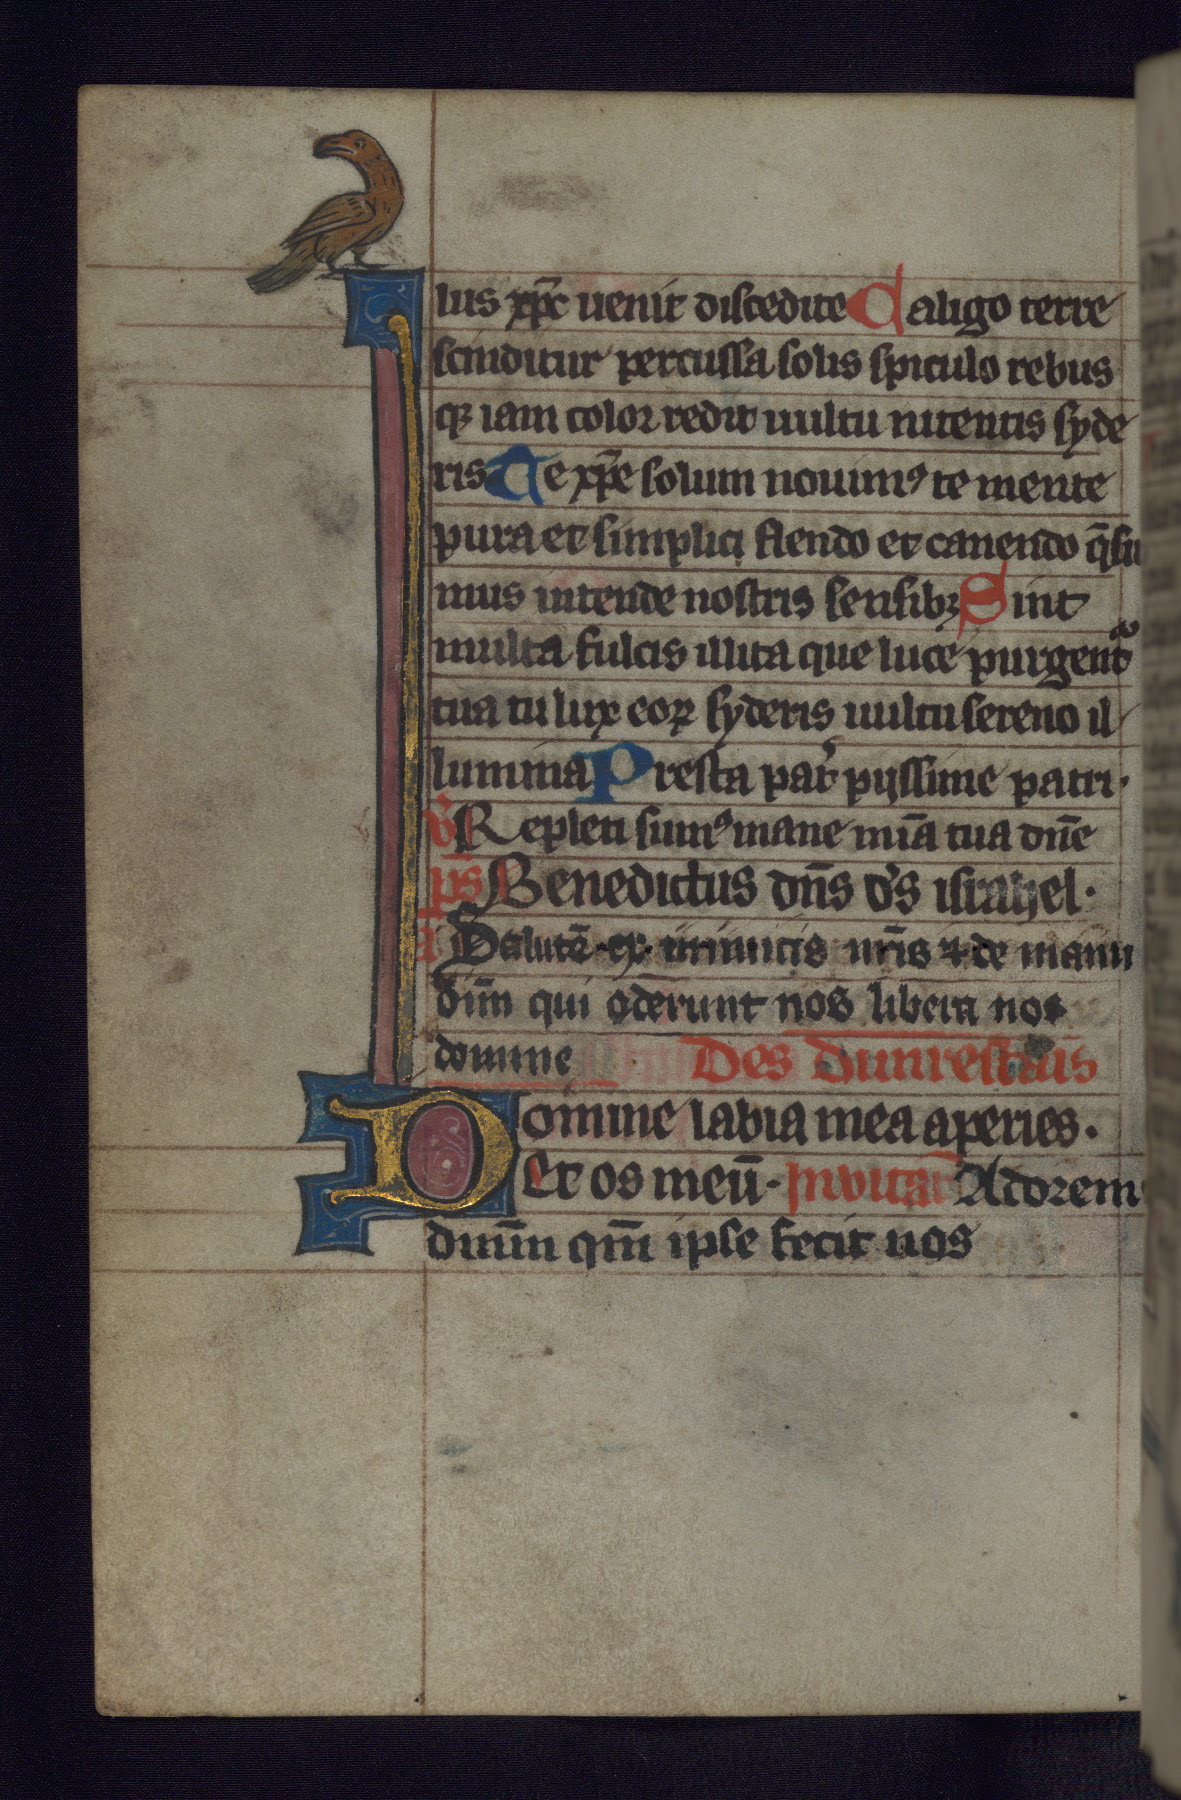 lus xp̄c uenit discedite Caligo terre
scinditur percussa solis spiculo rebus
qꝫ iam color redit uultu nitentis syde
ris Te xp̄e solum nouimꝰ te mente
pura et simplici flendo et canendo q̄su
mus intende nostris sensibꝫ Sint
multa fulcis illita que luce purgent᷑
tua tu lux eoꝝ syderis uultu sereno il
lumina Presta pat᷑ pijssime patri·
v᷑ Repleti sumꝰ mane mīa tua dn̄e
ps̄ Benedictus dn̄s d᷑s israhel·
a Salutē ex inimicis nr̄is ⁊ de manu
oīm qui oderunt nos libera nos
domine Des dunrestais
Domine labia mea aperies·
Et os meū· Inuitat᷑ Adorem
dominū qm̄ ipse fecit nos